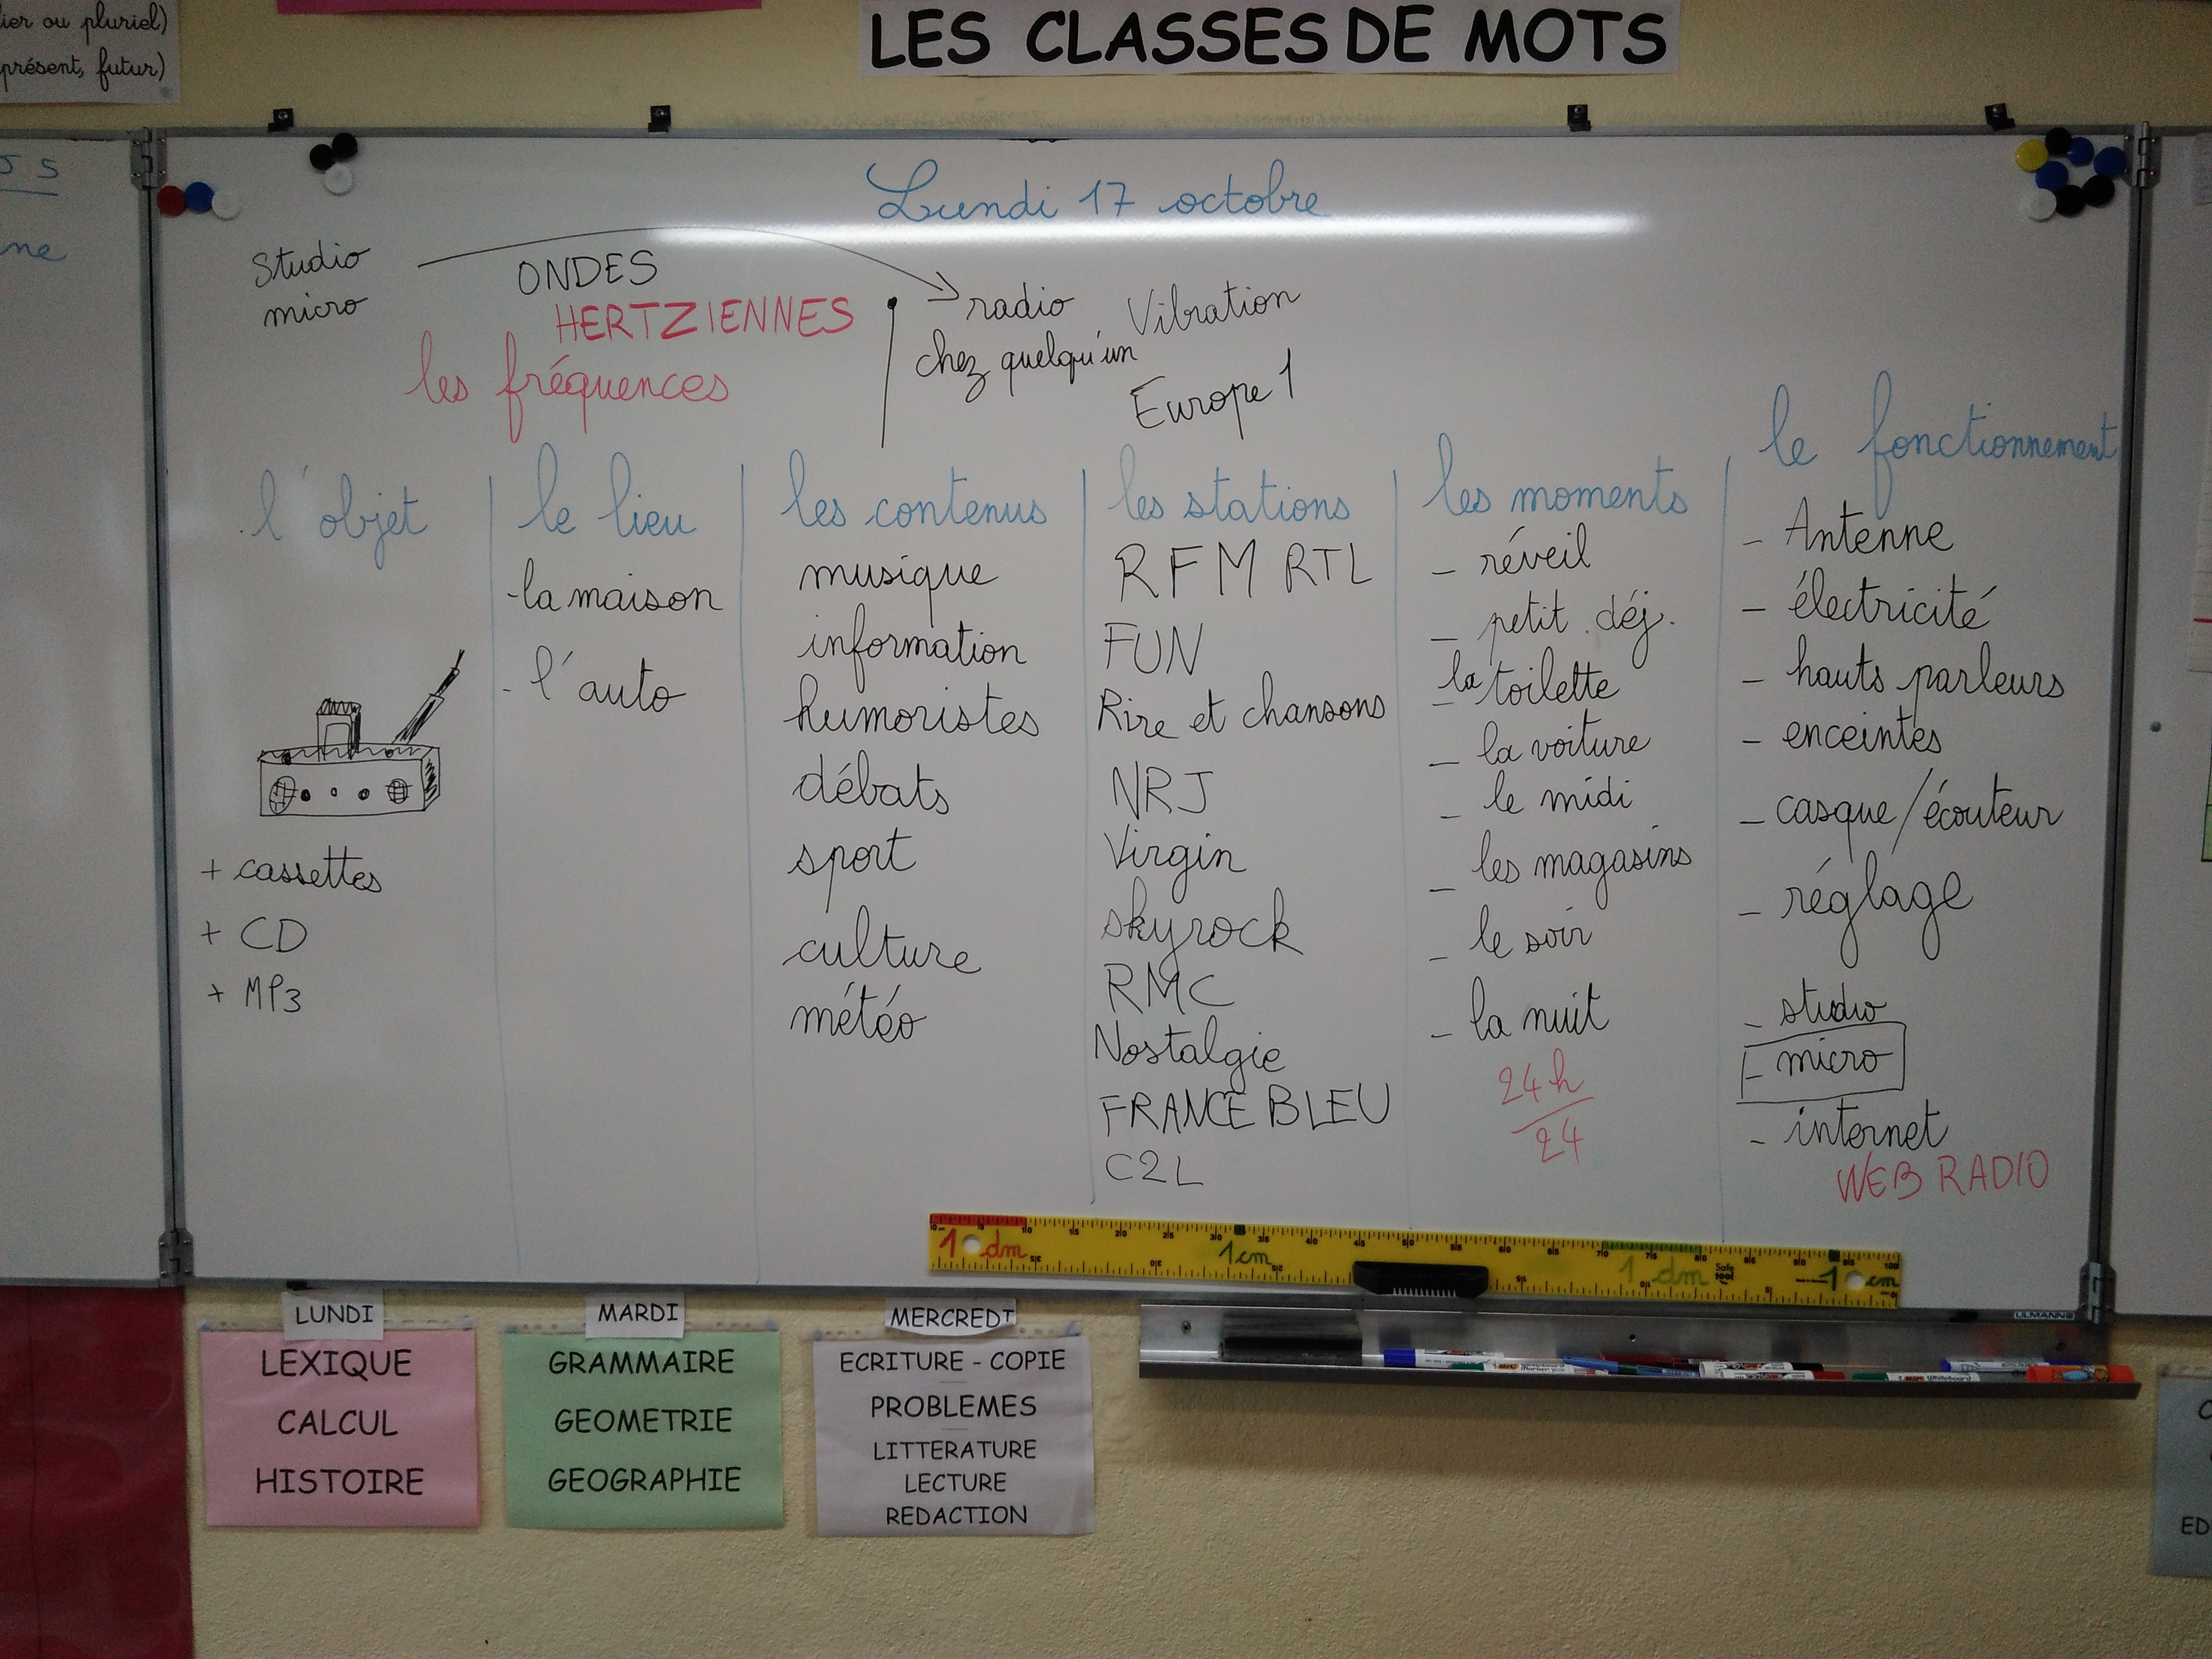 ier ou pluriel)
présent, futur)
LES CLASSES DE MOTS
Lundi 17 octobre
Studio
micro
ONDES
HERTZIENNES
les fréquences
radio
chez quelqu'un
Vibration
Europe 1
l'objet
+ cassettes
+ CD
+ MP3
le lieu
- la maison
- l'auto
les contenus
musique
information
humoristes
débats
sport
culture
météo
les stations
RFM RTL
FUN
Rire et chansons
NRJ
Virgin
skyrock
RMC
Nostalgie
FRANCE BLEU
C2L
les moments
- réveil
- petit. déj.
- la toilette
- la voiture
- le midi
- les magasins
- le soir
- la nuit
24h
24
le fonctionnement
- Antenne
- électricité
- hauts parleurs
- enceintes
- casque/écouteur
- réglage
- studio
- micro
- internet
WEB RADIO
1 dm
1 cm
1 dm
1 cm
ULMANN
LUNDI
LEXIQUE
CALCUL
HISTOIRE
MARDI
GRAMMAIRE
GEOMETRIE
GEOGRAPHIE
MERCREDI
ECRITURE - COPIE
PROBLEMES
LITTERATURE
LECTURE
REDACTION
ED